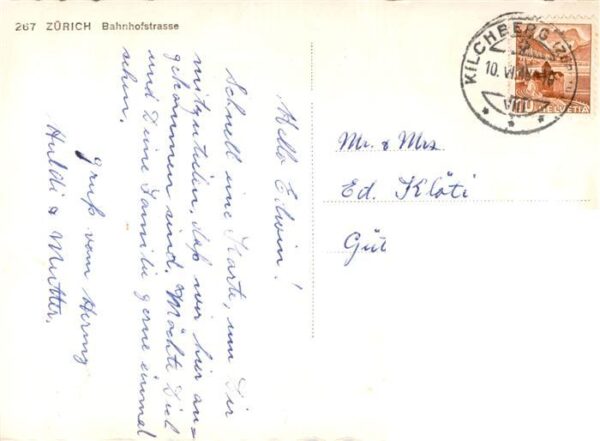 267 ZÜRICH Bahnhofstrasse
Hello Edwin!
Schnell eine Karte, um Dir
mitzuteilen, daß wir hier an=
gekommen sind. Möchte Dich
und Deine Familie gerne einmal
sehen.
Gruß vom
Huldi & Mutter.
KILCHBERG
10. VI
VIII
HELVETIA
Mr. & Mrs.
Ed. Klöti
Güt